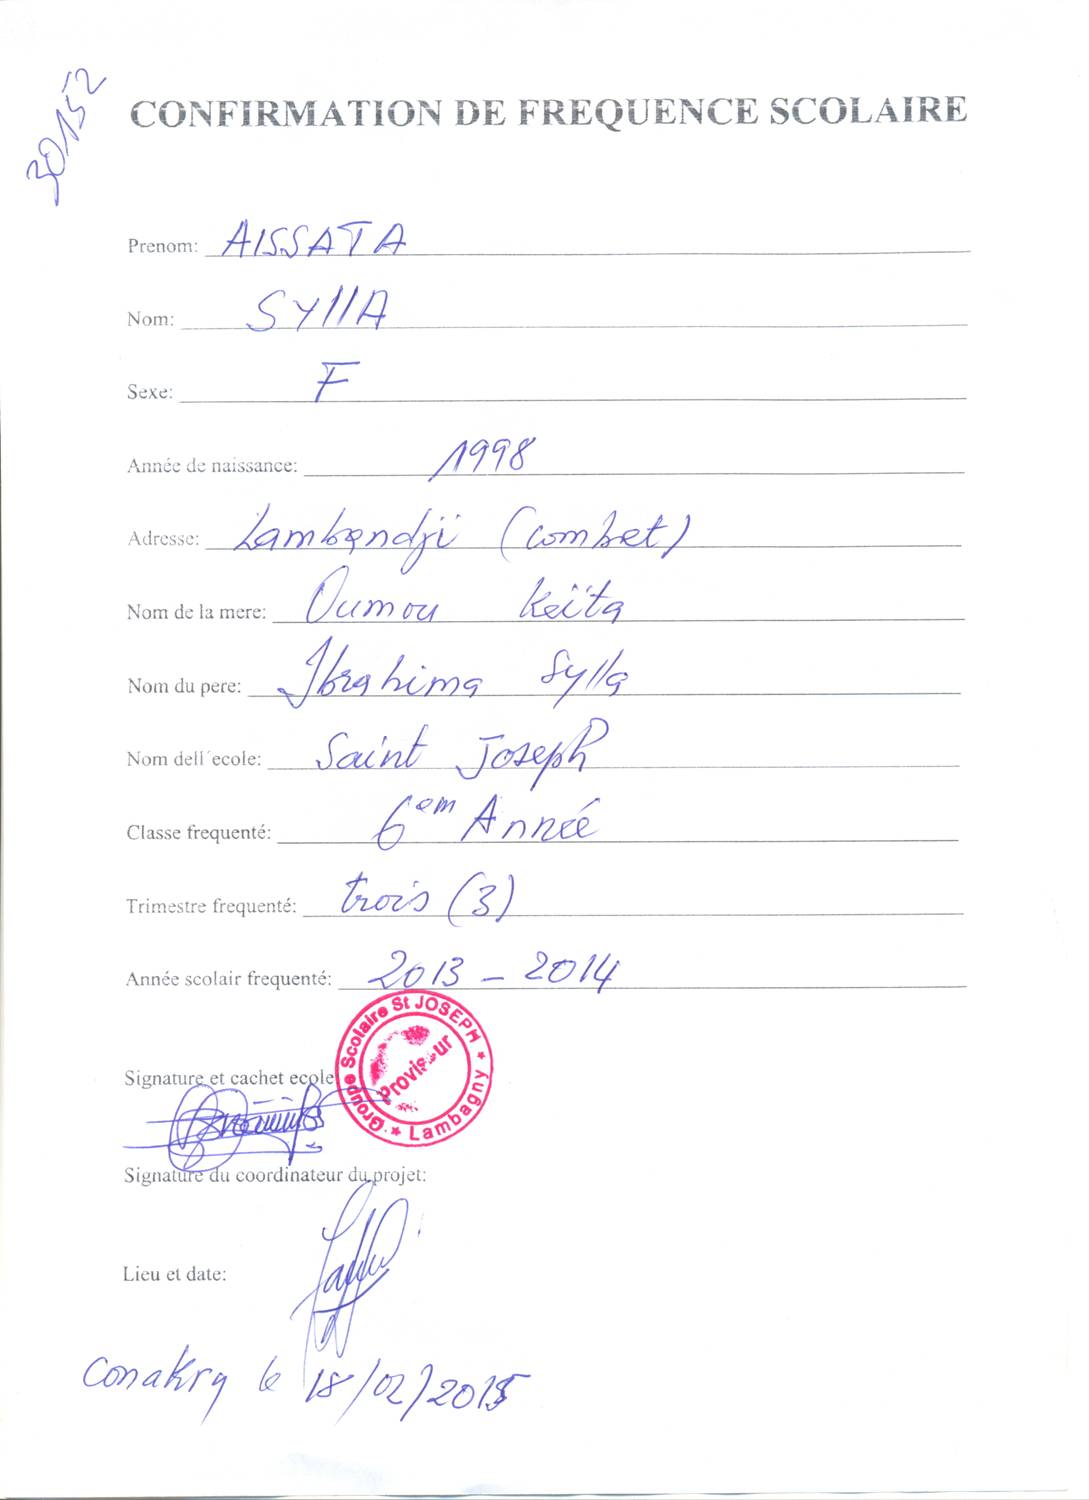 30152
CONFIRMATION DE FREQUENCE SCOLAIRE
Prenom: AISSATA
Nom: SYllA
Sexe: F
Année de naissance: 1998
Adresse: Lambandji (combet)
Nom de la mere: Oumou Keïta
Nom du pere: Ibrahima Sylla
Nom dell´ecole: Saint Joseph
Classe frequenté: 6em Année
Trimestre frequenté: trois (3)
Année scolair frequenté: 2013 - 2014
Groupe Scolaire St JOSEPH * Lambagny *
Proviseur
Signature et cachet ecole
Signature du coordinateur du projet:
Lieu et date:
Conakry le 18/02/2015